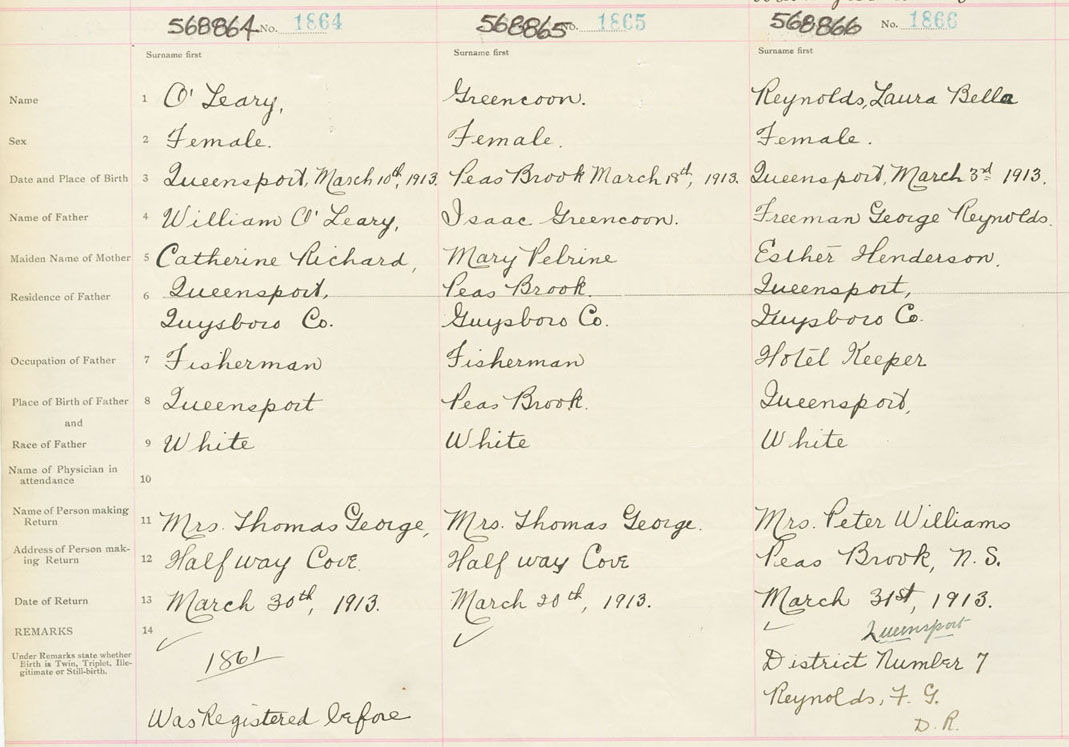 568864 No. 1864 568865 No. 1865 568866 No. 1866
Surname first Surname first Surname first
Name 1 O'Leary, Greencoon. Reynolds, Laura Bella
Sex 2 Female. Female. Female.
Date and Place of Birth 3 Queensport, March 10th, 1913. Peas Brook March 18th, 1913. Queensport, March 3rd 1913.
Name of Father 4 William O'Leary, Isaac Greencoon. Freeman George Reynolds.
Maiden Name of Mother 5 Catherine Richard, Mary Pelrine Esther Henderson.
Residence of Father 6 Queensport, Peas Brook. Queensport,
Guysboro Co. Guysboro Co. Guysboro Co.
Occupation of Father 7 Fisherman Fisherman Hotel Keeper
Place of Birth of Father 8 Queensport Peas Brook. Queensport,
and
Race of Father 9 White White White
Name of Physician in
attendance 10
Name of Person making
Return 11 Mrs. Thomas George, Mrs. Thomas George. Mrs. Peter Williams
Address of Person mak-
ing Return 12 Half way Cove. Half way Cove Peas Brook, N.S.
Date of Return 13 March 30th, 1913. March 20th, 1913. March 31st, 1913.
REMARKS 14 Queensport
Under Remarks state whether
Birth is Twin, Triplet, Ille-
gitimate or Still-birth.
1861 District Number 7
Reynolds, F. G.
Was Registered before D.R.